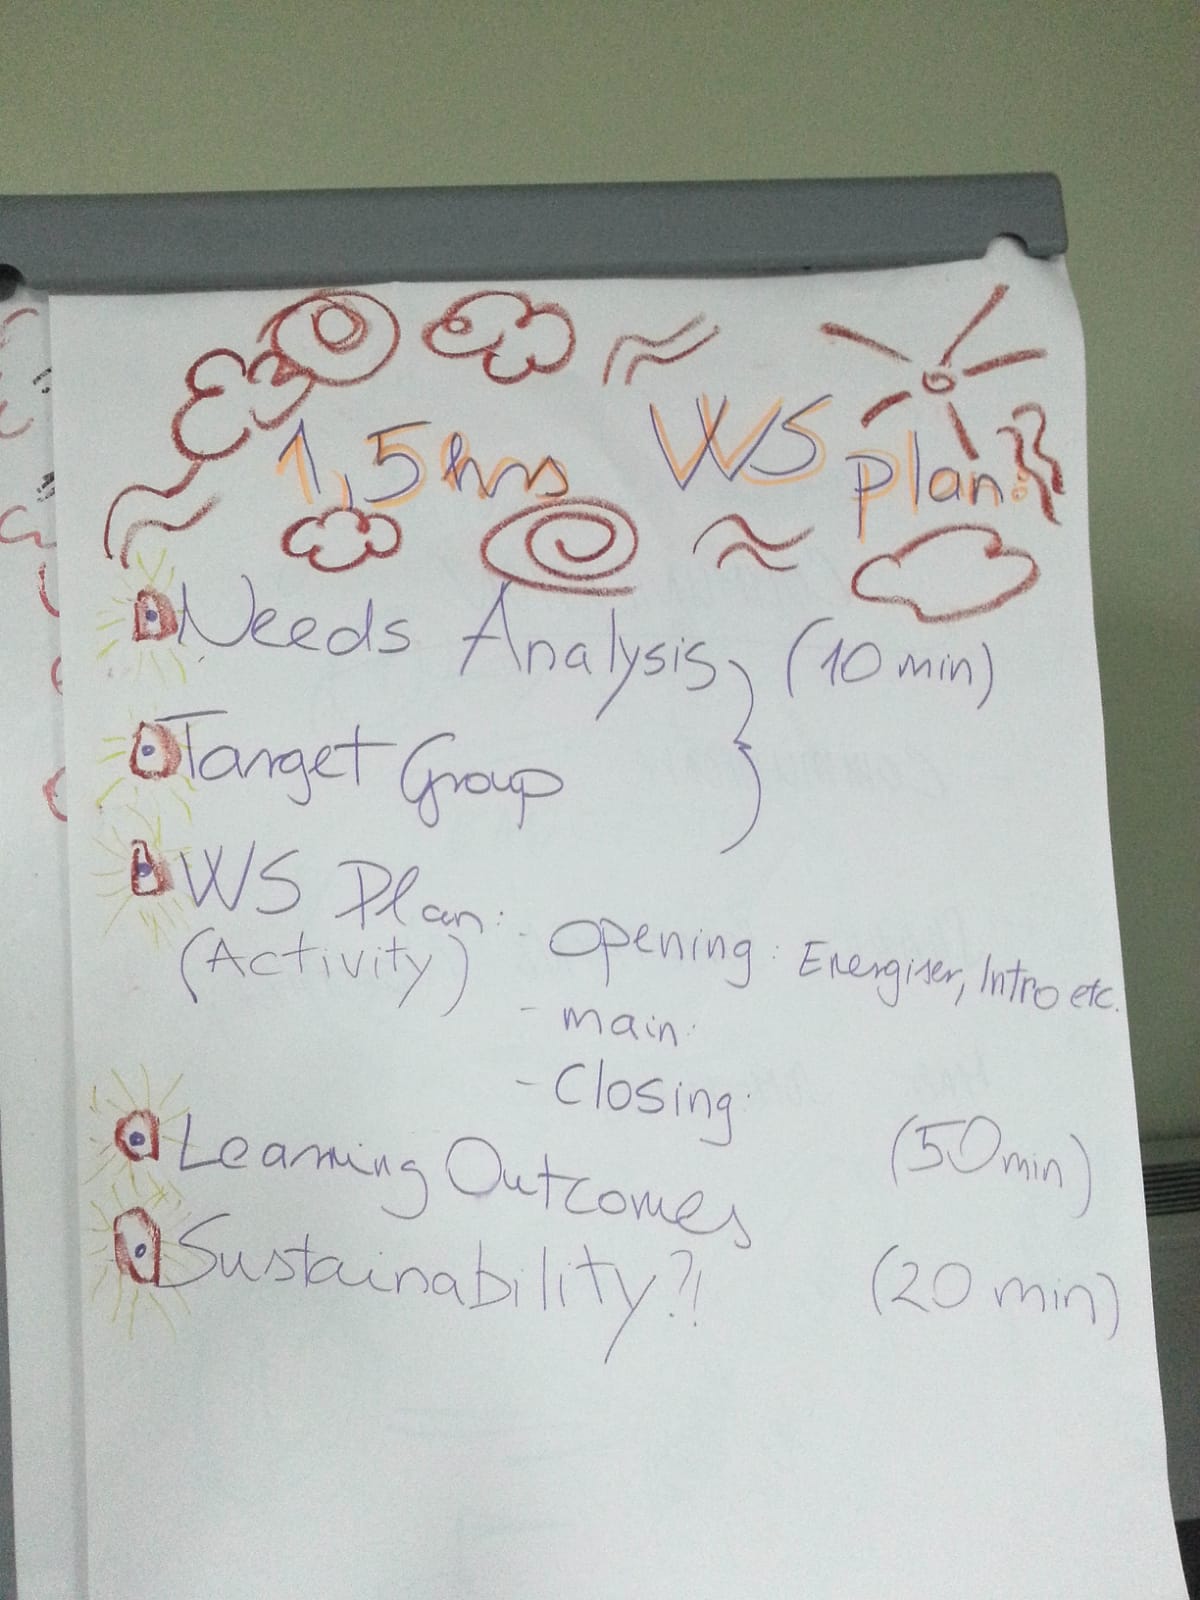 1,5 hrs WS plan:
Needs Analysis (10 min)
Target Group
WS Plan: - Opening: Energiser, Intro etc.
(Activity)
- main:
- Closing:
Learning Outcomes (50 min)
Sustainability?! (20 min)